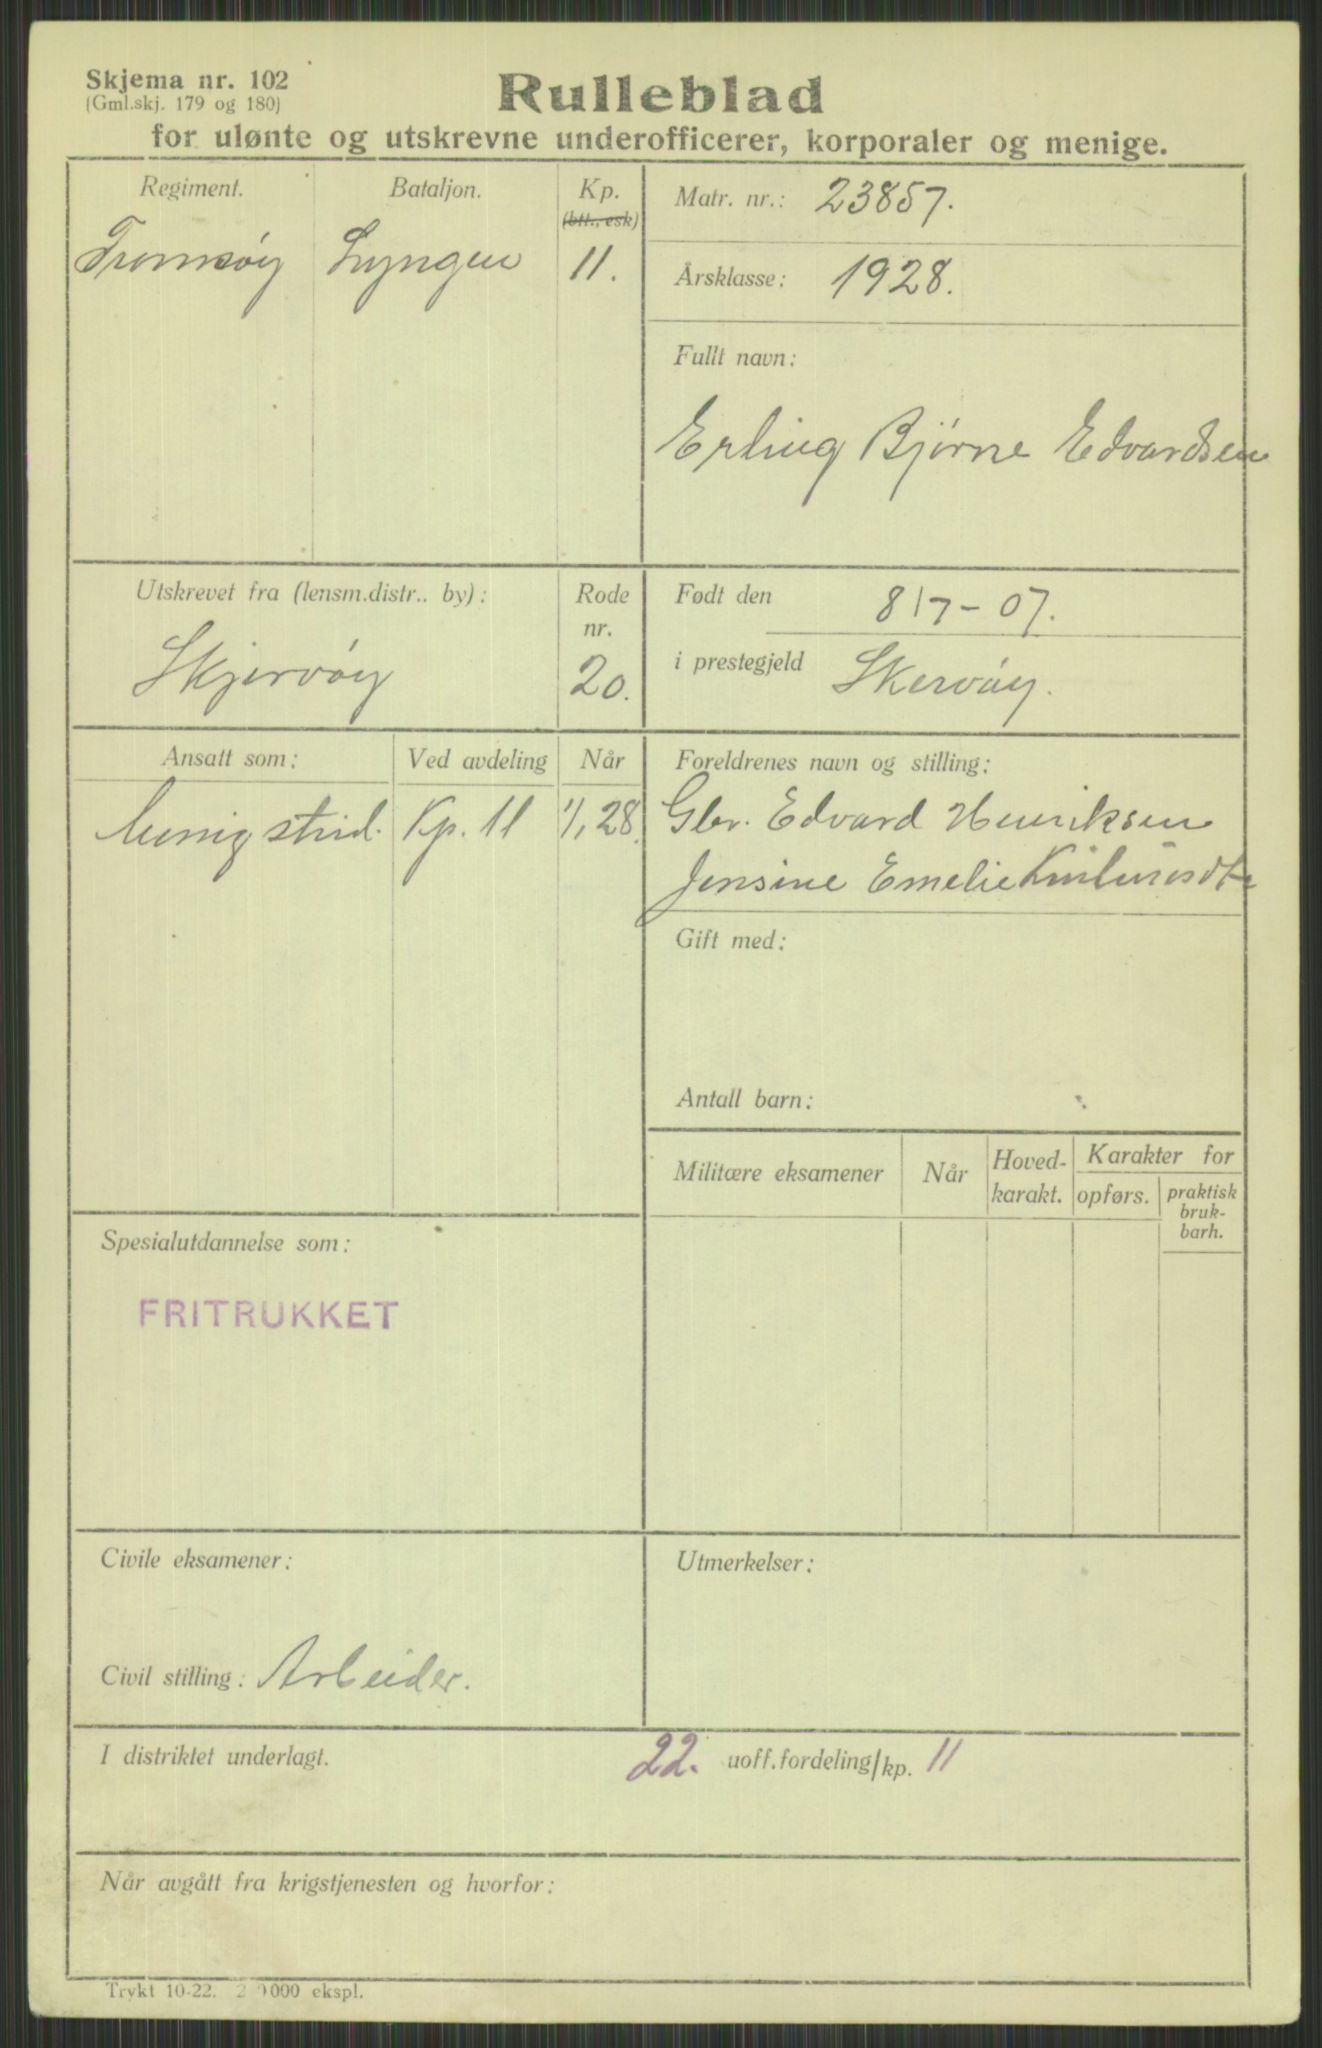 Skjema nr. 102
(Gml.skj. 179 og 180)
Rulleblad
for ulønte og utskrevne underofficerer, korporaler og menige.
Regiment. Bataljon. Kp.
(btt., esk)
Tromsøy Lyngen 11.
Matr. nr.: 23857.
Årsklasse: 1928.
Fullt navn:
Erling Bjørne Edvardsen
Utskrevet fra (lensm.distr.. by): Rode
nr.
Skjervøy 20.
Født den 8/7-07.
i prestegjeld Skervøy.
Ansatt som: Ved avdeling Når
Menig strid. Kp. 11 1/1 28.
Foreldrenes navn og stilling:
Gbr. Edvard Henriksen
Jensine Emelie
Gift med:
Antall barn:
Militære eksamener Når Hoved-
karakt. Karakter for
opførs. praktisk
bruk-
barh.
Spesialutdannelse som:
FRITRUKKET
Civile eksamener:
Civil stilling: Arbeider.
Utmerkelser:
I distriktet underlagt. 22. uoff.fordeling/kp. 11
Når avgått fra krigstjenesten og hvorfor:
Trykt 10-22. 2 0 000 ekspl.